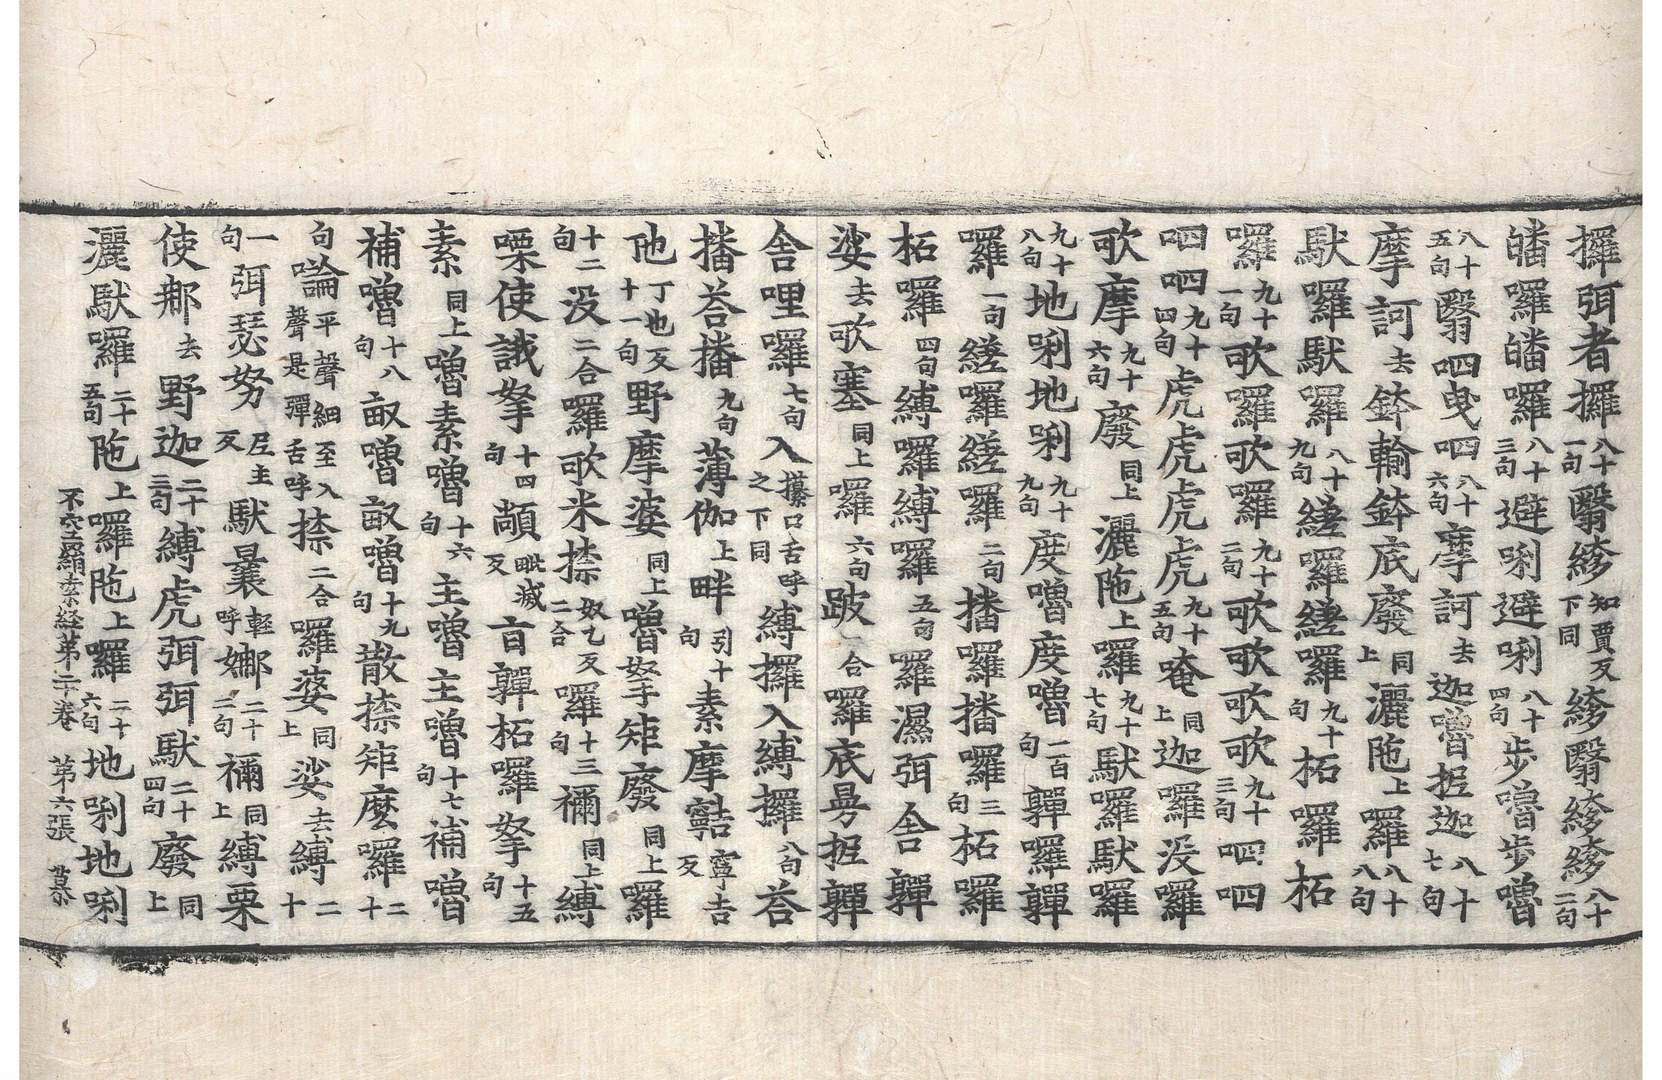 攞弭者攞八十一句翳縿知賈反下同縿翳縿縿八十二句
皤囉皤囉八十三句避唎避唎八十四句步嚕步嚕
八十五句翳呬曳呬八十六句摩訶去迦嚕抳迦八十七句
摩訶去鉢輸鉢底廢同上灑陁上囉八十八句
馱囉馱囉八十九句縒囉縒囉九十句柘囉柘
囉九十一句歌囉歌囉九十二句歌歌歌九十三句呬呬
呬呬九十四句虎虎虎虎九十五句唵同上迦囉没囉
歌摩九十六句廢同上灑陁上囉九十七句馱囉馱囉
九十八句地唎地唎九十九句度嚕度嚕一百句亸囉亸
囉一句縒囉縒囉二句播囉播囉三句柘囉
柘囉四句縛囉縛囉五句囉濕弭舍亸
娑去歌塞同上囉六句跛二合囉底曼抳亸
舍哩囉七句入攥口舌呼之下同縛攞入縛攞八句荅
播荅播九句薄伽上畔引十句素摩𪗾寧吉反
他丁也反十一句野摩婆同上嚕拏矩廢同上囉
十二句没二合囉歌米捺奴乞反二合囉十三句禰同上縛
㗚使誐拏十四句顛毗減反盲亸柘囉拏十五句
素同上嚕素嚕十六句主嚕主嚕十七句補嚕
補嚕十八句散嚕散嚕十九句散捺矩麽囉二十
句㖮平聲細至入聲是彈舌呼捺二合囉婆同上娑去縛二十
一句弭瑟努尼主反馱曩輕呼娜二十二句禰同上縛栗
使𨙻去野迦二十三句縛虎弭弭馱二十四句廢同上
灑馱囉二十五句陁上囉陁上囉二十六句地唎地唎
不空羂索經第二十卷　第六張　慕